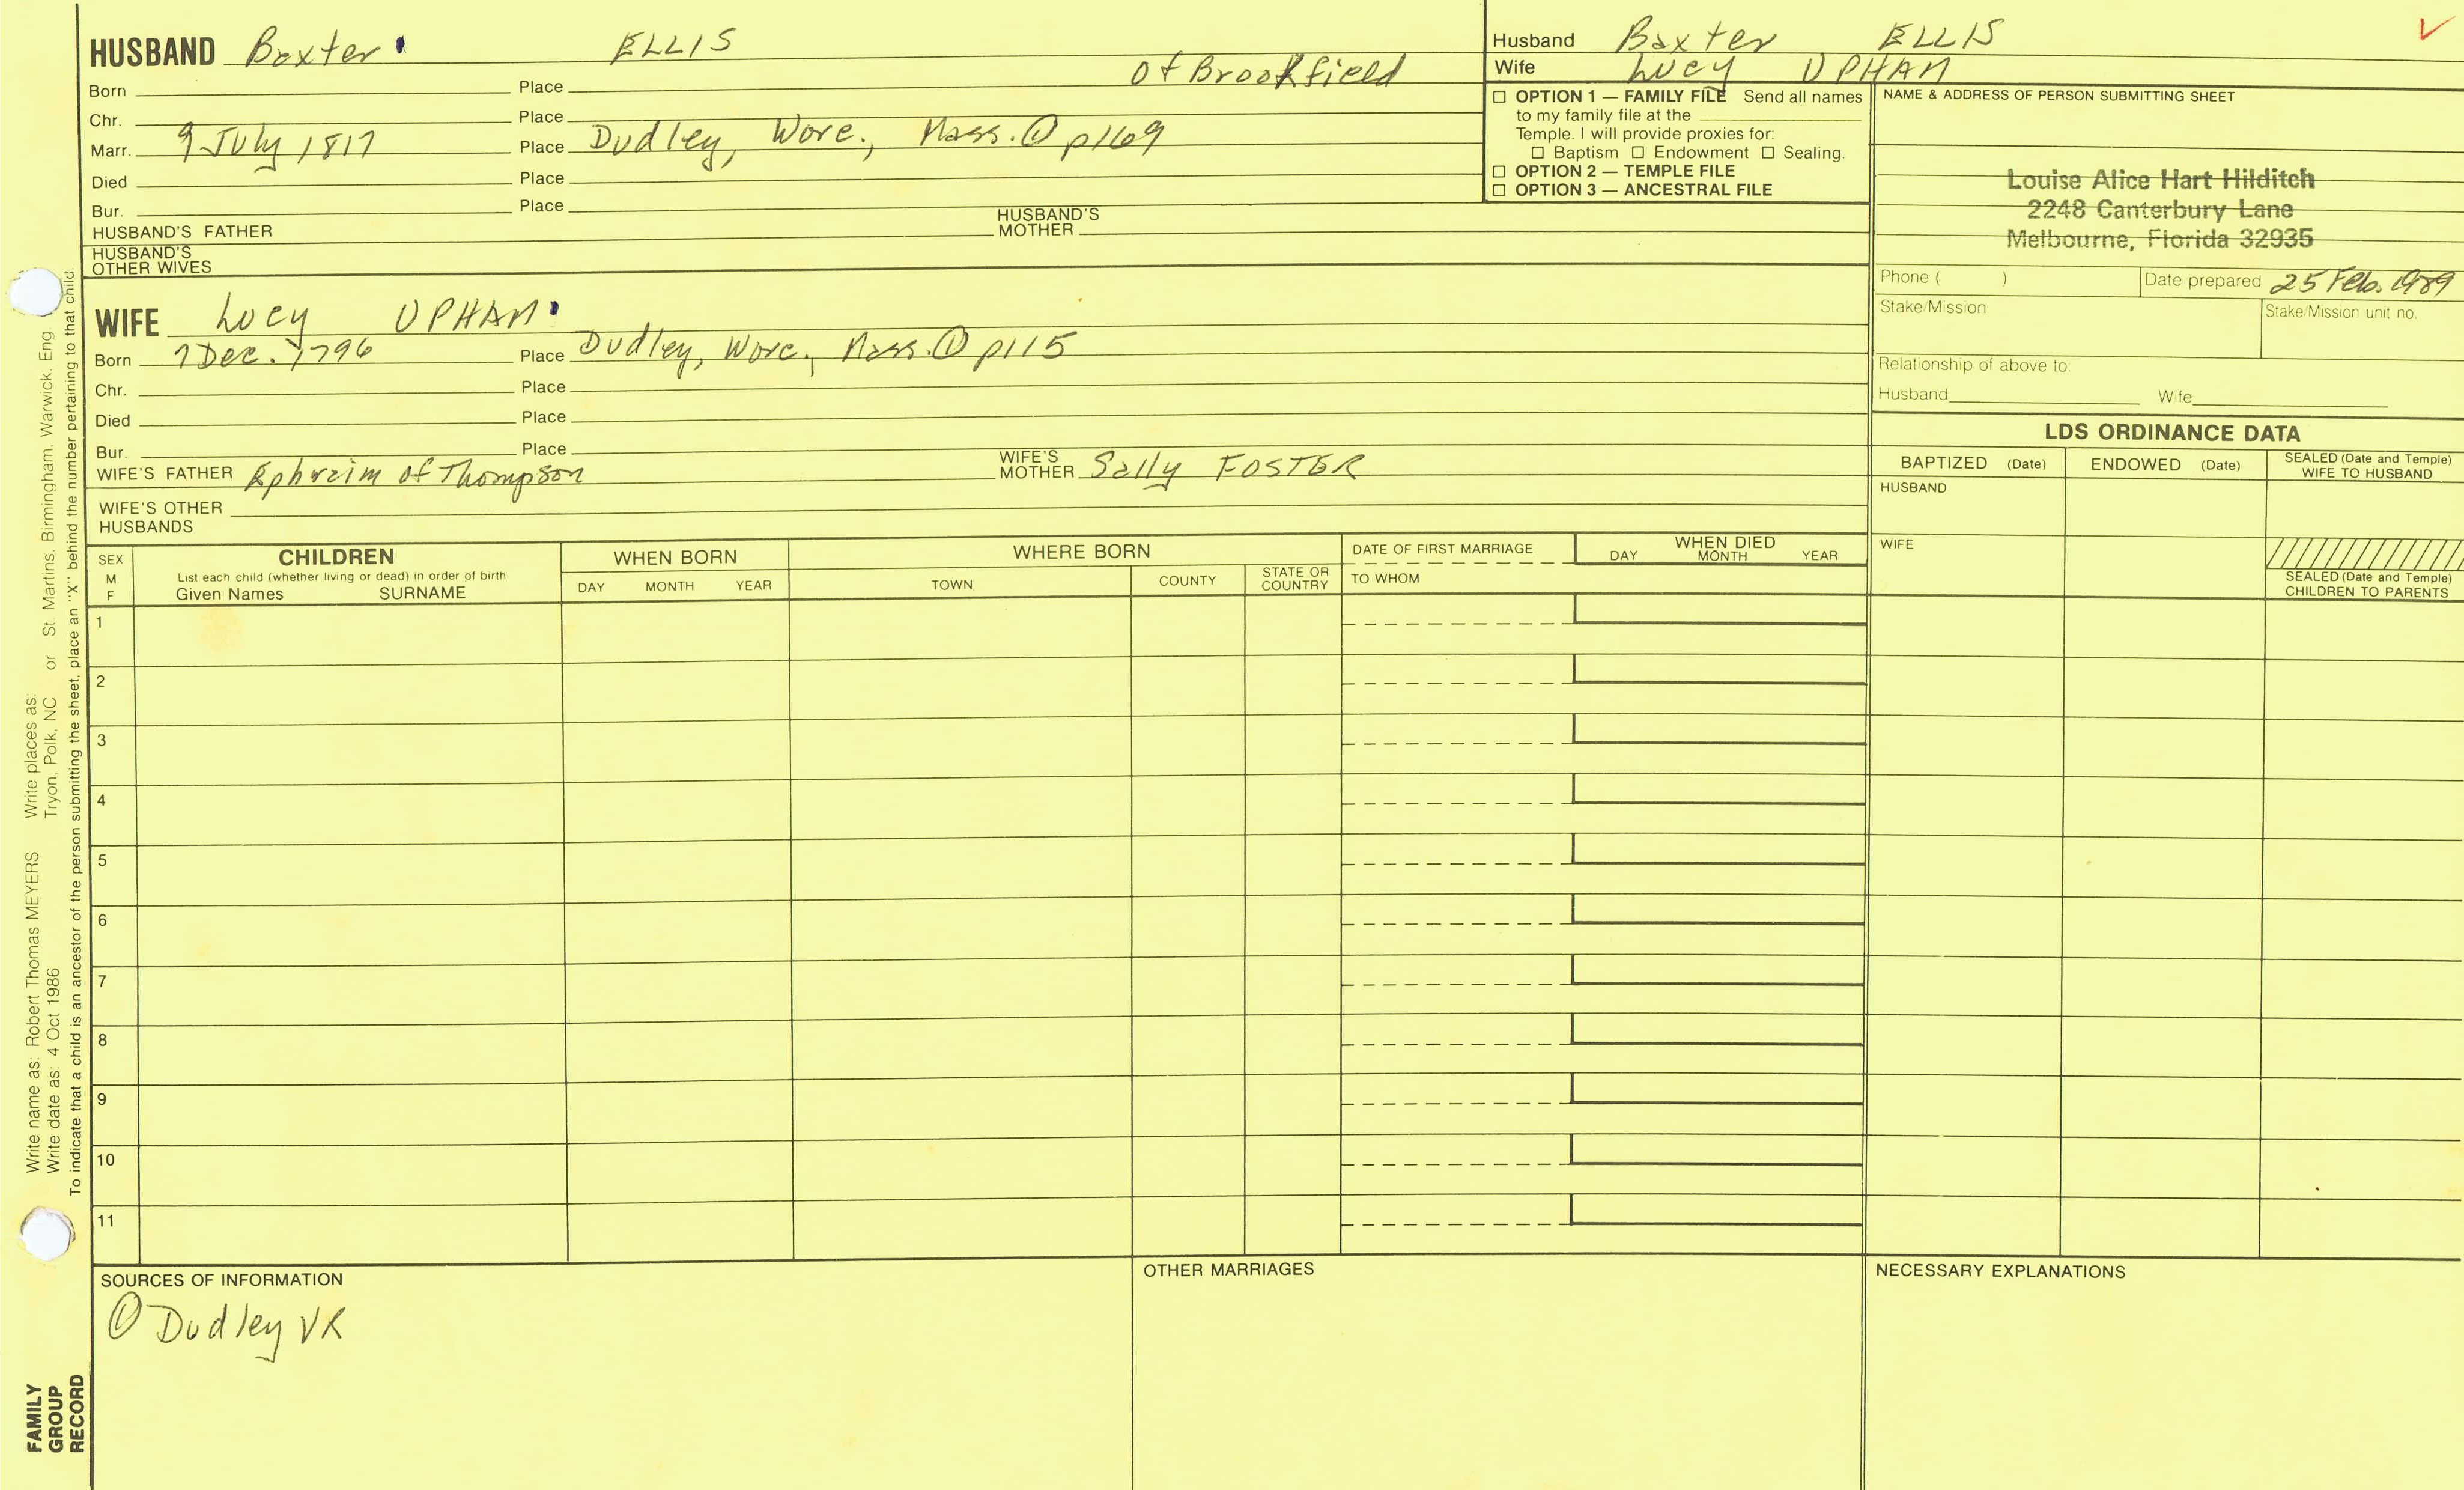 HUSBAND Baxter ELLIS
of Brookfield
Born Place
Chr. Place
Marr. 9 July 1817 Place Dudley, Worc., Mass. ① p169
Died Place
Bur. Place
HUSBAND'S FATHER HUSBAND'S MOTHER
HUSBAND'S OTHER WIVES
Husband Baxter ELLIS
Wife Lucy UPHAM
☐ OPTION 1 — FAMILY FILE Send all names
to my family file at the
Temple. I will provide proxies for:
☐ Baptism ☐ Endowment ☐ Sealing.
☐ OPTION 2 — TEMPLE FILE
☐ OPTION 3 — ANCESTRAL FILE
NAME & ADDRESS OF PERSON SUBMITTING SHEET
Louise Alice Hart Hilditch
2248 Canterbury Lane
Melbourne, Florida 32935
Phone ( ) Date prepared 25 Feb. 1989
Stake/Mission Stake/Mission unit no.
Relationship of above to:
Husband Wife
WIFE Lucy UPHAM
Born 7 Dec. 1796 Place Dudley, Worc., Mass. ① p115
Chr. Place
Died Place
Bur. Place
WIFE'S FATHER Ephraim of Thompson WIFE'S MOTHER Sally FOSTER
WIFE'S OTHER HUSBANDS
LDS ORDINANCE DATA
BAPTIZED (Date) ENDOWED (Date) SEALED (Date and Temple) WIFE TO HUSBAND
HUSBAND
WIFE
SEALED (Date and Temple) CHILDREN TO PARENTS
SEX M F
CHILDREN
List each child (whether living or dead) in order of birth
Given Names SURNAME
WHEN BORN
DAY MONTH YEAR
WHERE BORN
TOWN COUNTY STATE OR COUNTRY
DATE OF FIRST MARRIAGE
TO WHOM
WHEN DIED
DAY MONTH YEAR
1
2
3
4
5
6
7
8
9
10
11
SOURCES OF INFORMATION
① Dudley VR
OTHER MARRIAGES
NECESSARY EXPLANATIONS
Write name as: Robert Thomas MEYERS Write places as:
Write date as: 4 Oct 1986 Tryon, Polk, NC or St. Martins, Birmingham, Warwick, Eng
To indicate that a child is an ancestor of the person submitting the sheet, place an "X" behind the number pertaining to that child.
FAMILY
GROUP
RECORD